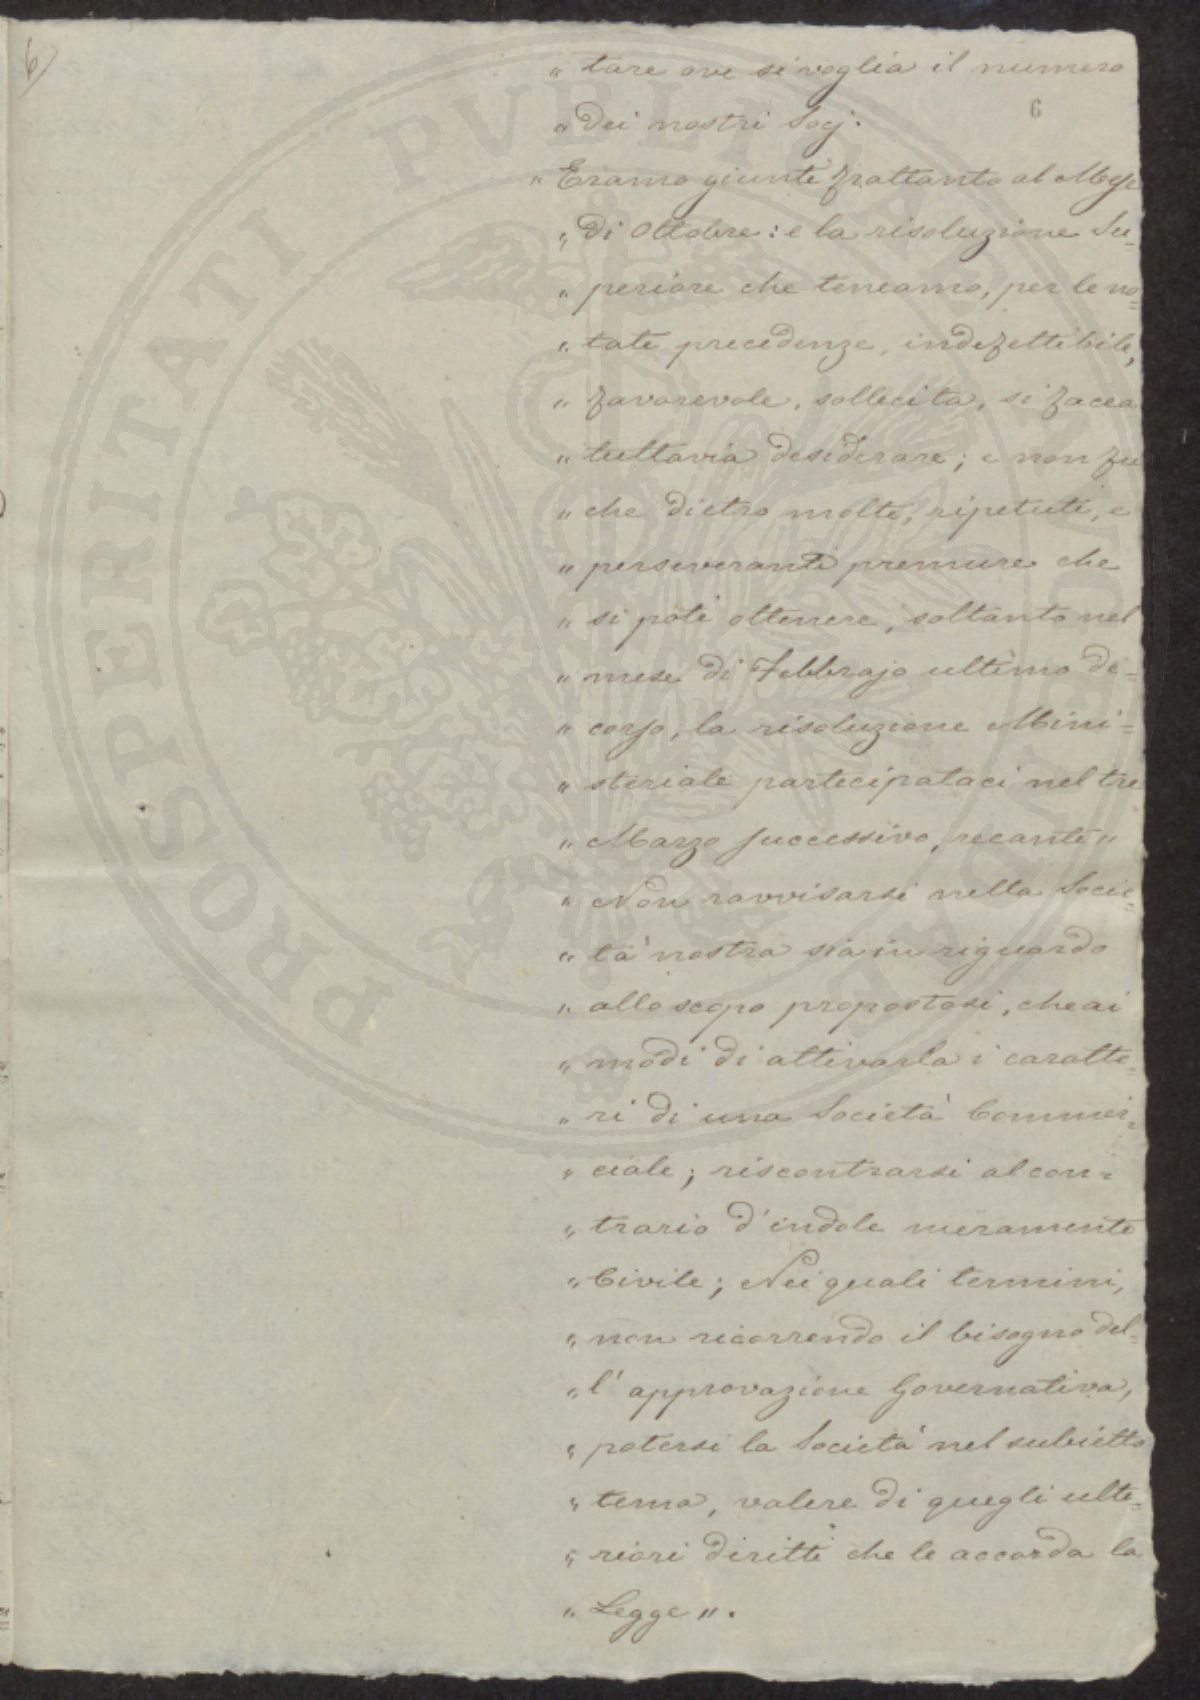 6
6
„ tare ove si voglia il numero
„ dei nostri Socj.
„ Eramo giunti frattanto al Mese
„ di Ottobre: e la risoluzione Su=
„ periore che teneamo, per le no=
„ tate precedenze, indefettibile,
„ favorevole, sollecita, si facea
„ tuttavia desiderare; e non fu
„ che dietro molte, ripetute, e
„ perseveranti premure che
„ si poté ottenere, soltanto nel
„ mese di Febbrajo ultimo de=
„ corso, la risoluzione Mini=
„ steriale partecipataci nel tre
„ Marzo successivo, recante „
„ Non ravvisarsi nella Socie=
„ tà nostra sia in riguardo
„ allo scopo propostosi, che ai
„ modi di attivarla i caratte=
„ ri di una Società Commer=
„ ciale; riscontrarsi al con=
„ trario d'indole meramente
„ Civile; Nei quali termini,
„ non ricorrendo il bisogno del=
„ l' approvazione Governativa,
„ potersi la Società nel subietto
„ tema, valere di quegli ulte=
„ riori diritti che le accorda la
„ Legge „.
PROSPERITATI PVBLICAE